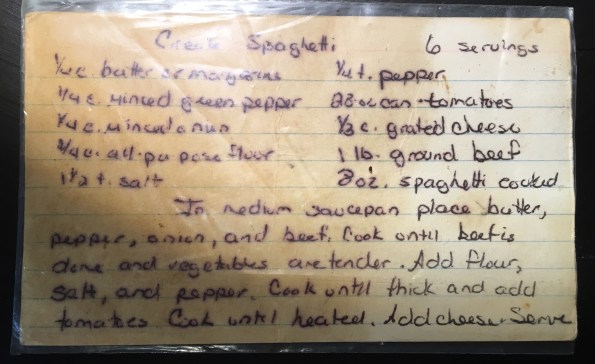 Create Spaghetti 6 servings
1/4 c. butter or margarine 1/4 t. pepper
1/4 c. minced green pepper 28 oz can tomatoes
1/4 c. minced onion 1/3 c. grated cheese
1/4 c. all-purpose flour 1 lb. ground beef
1 1/2 t. salt 8 oz. spaghetti cooked
In medium saucepan place butter,
pepper, onion, and beef. Cook until beef is
done and vegetables are tender. Add flour,
salt, and pepper. Cook until thick and add
tomatoes Cook until heated. Add cheese. Serve